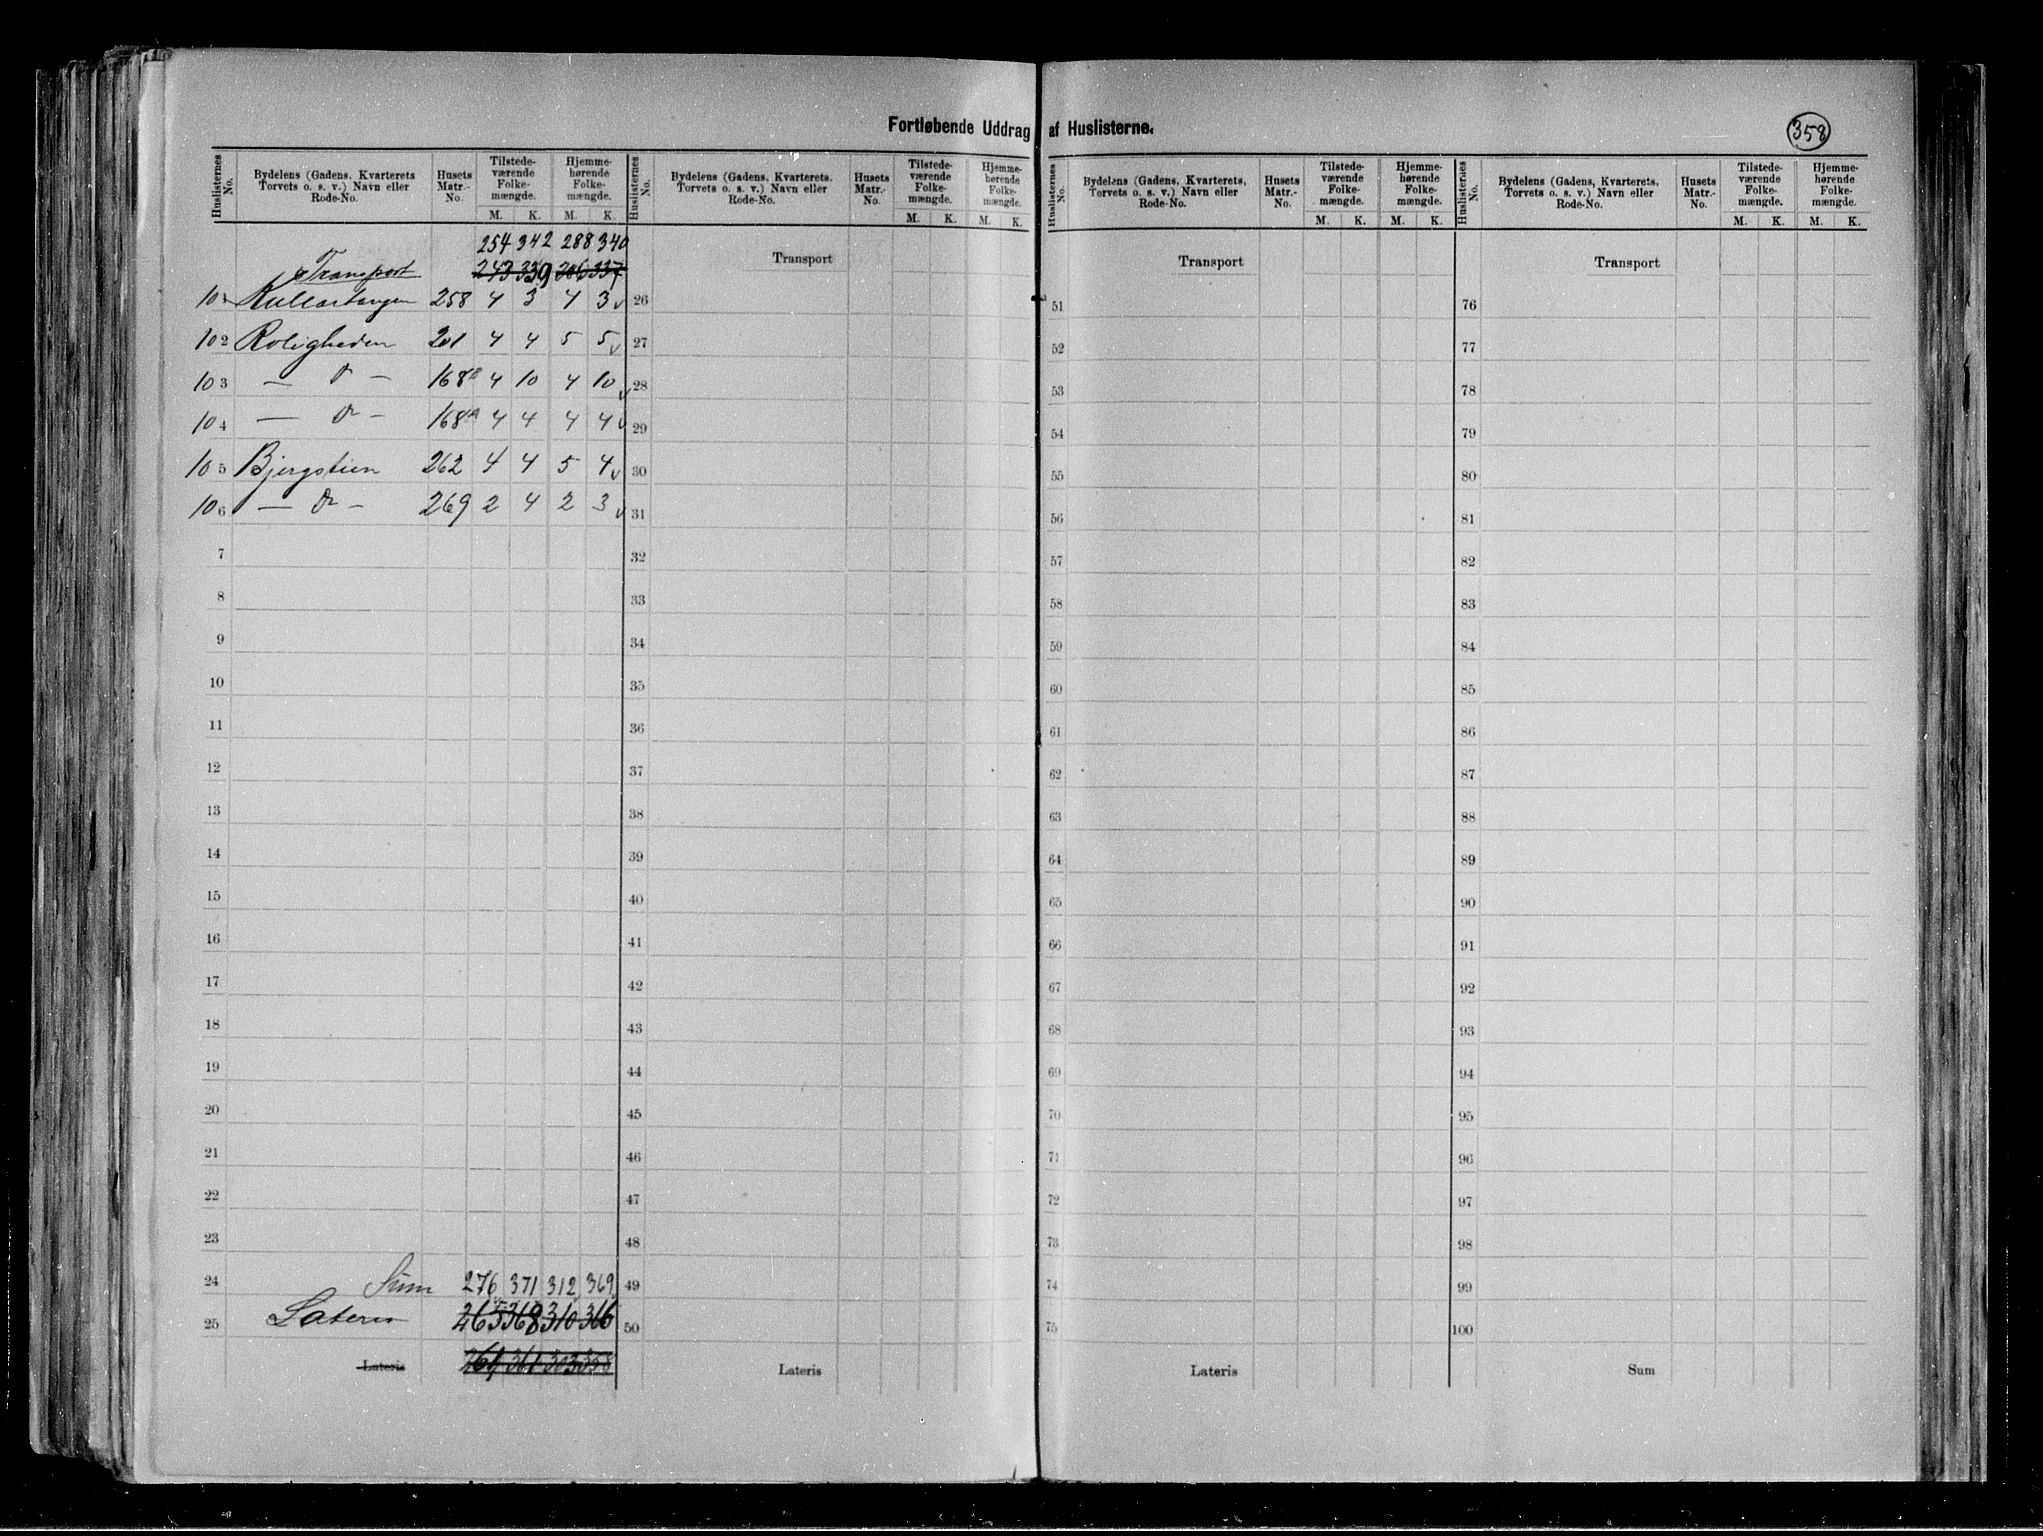 Fortløbende Uddrag af Huslisterne.
358
Huslisternes No. Bydelens (Gadens, Kvarterets Torvets o. s. v.) Navn eller Rode-No. Husets Matr.-No. Tilstede-værende Folke-mængde. M. K. Hjemme-hørende Folke-mængde. M. K.
254 342 288 340
Transport 243 339 286 337
101 258 4 3 4 3
102 Roligheden 201 4 4 5 5
103 — do — 168B 4 10 4 10
104 — do — 168A 4 4 4 4
105 Bjergstien 262 4 4 5 4
106 — do — 269 2 4 2 3
7
8
9
10
11
12
13
14
15
16
17
18
19
20
21
22
23
24 Sum 276 371 312 369
25 Lateris 265 368 310 366
Lateris 261 361 303 358
Huslisternes No. Bydelens (Gadens, Kvarterets, Torvets o. s. v.) Navn eller Rode-No. Husets Matr.-No. Tilstede-værende Folke-mængde. M. K. Hjemme-hørende Folke-mængde. M. K.
Transport
26
27
28
29
30
31
32
33
34
35
36
37
38
39
40
41
42
43
44
45
46
47
48
49
50
Lateris
Huslisternes No. Bydelens (Gadens, Kvarterets, Torvets o. s. v.) Navn eller Rode-No. Husets Matr.-No. Tilstede-værende Folke-mængde. M. K. Hjemme-hørende Folke-mængde. M. K.
Transport
51
52
53
54
55
56
57
58
59
60
61
62
63
64
65
66
67
68
69
70
71
72
73
74
75
Lateris
Huslisternes No. Bydelens (Gadens, Kvarterets, Torvets o. s. v.) Navn eller Rode-No. Husets Matr.-No. Tilstede-værende Folke-mængde. M. K. Hjemme-hørende Folke-mængde. M. K.
Transport
76
77
78
79
80
81
82
83
84
85
86
87
88
89
90
91
92
93
94
95
96
97
98
99
100
Sum